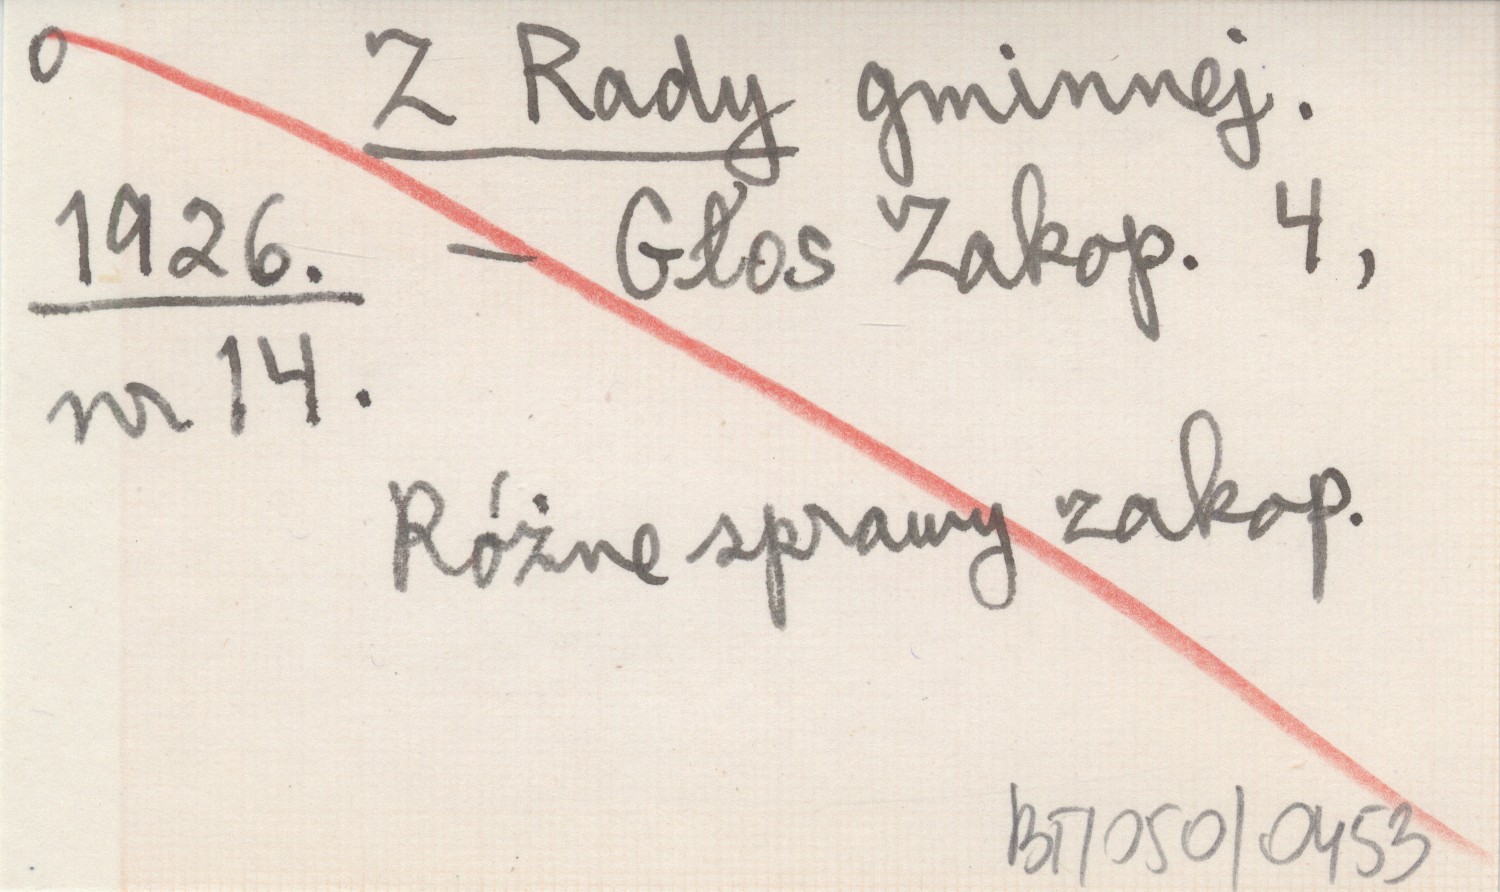 0
Z Rady gminnej.
1926. – Głos Zakop. 4,
nr 14.
Różne sprawy zakop.
BT/050/0453